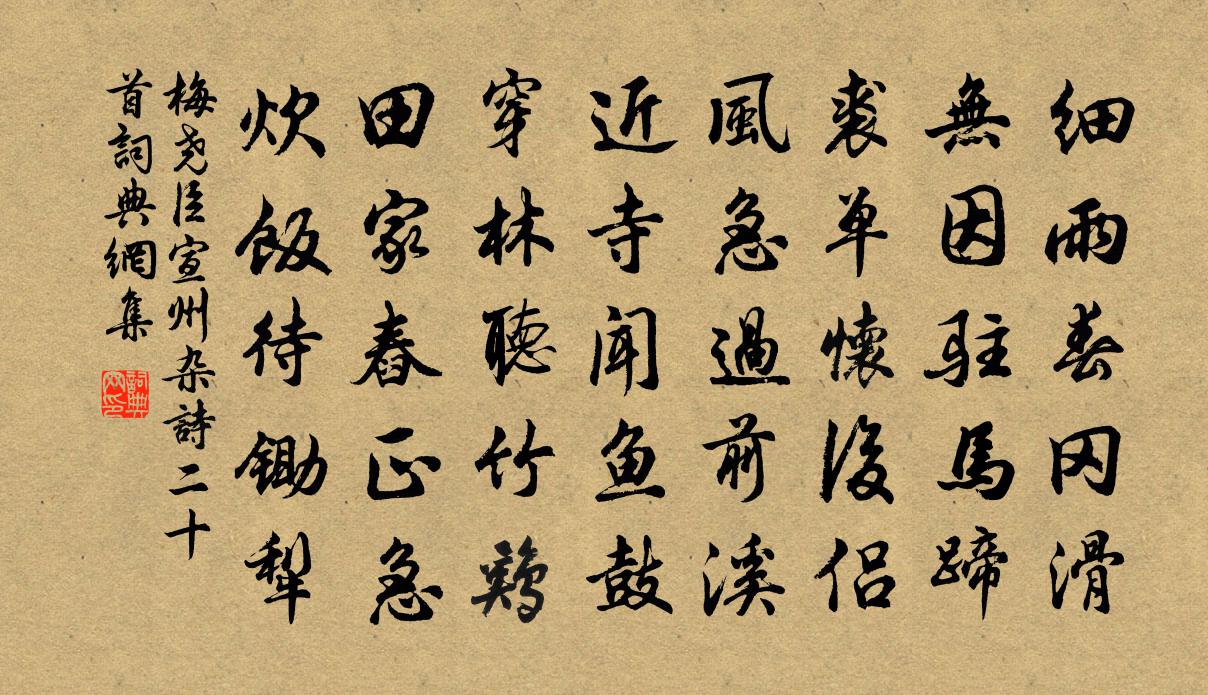 細雨春冈滑
無因駐馬蹄
裘单懷後侣
風急過前溪
近寺闻鱼鼓
穿林聽竹鶏
田家舂正急
炊飯待锄犁
梅尧臣宣州杂詩二十
首詞典網集
詞典
网印